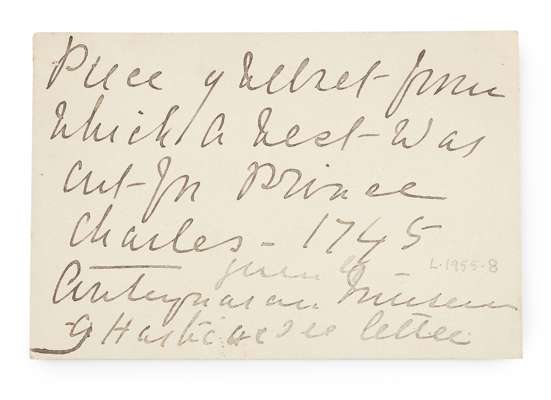 Piece of Velvet from
which a Vest was
cut for Prince
Charles - 1745
given to
L.1955-8
Antiquarian Museum
see letter